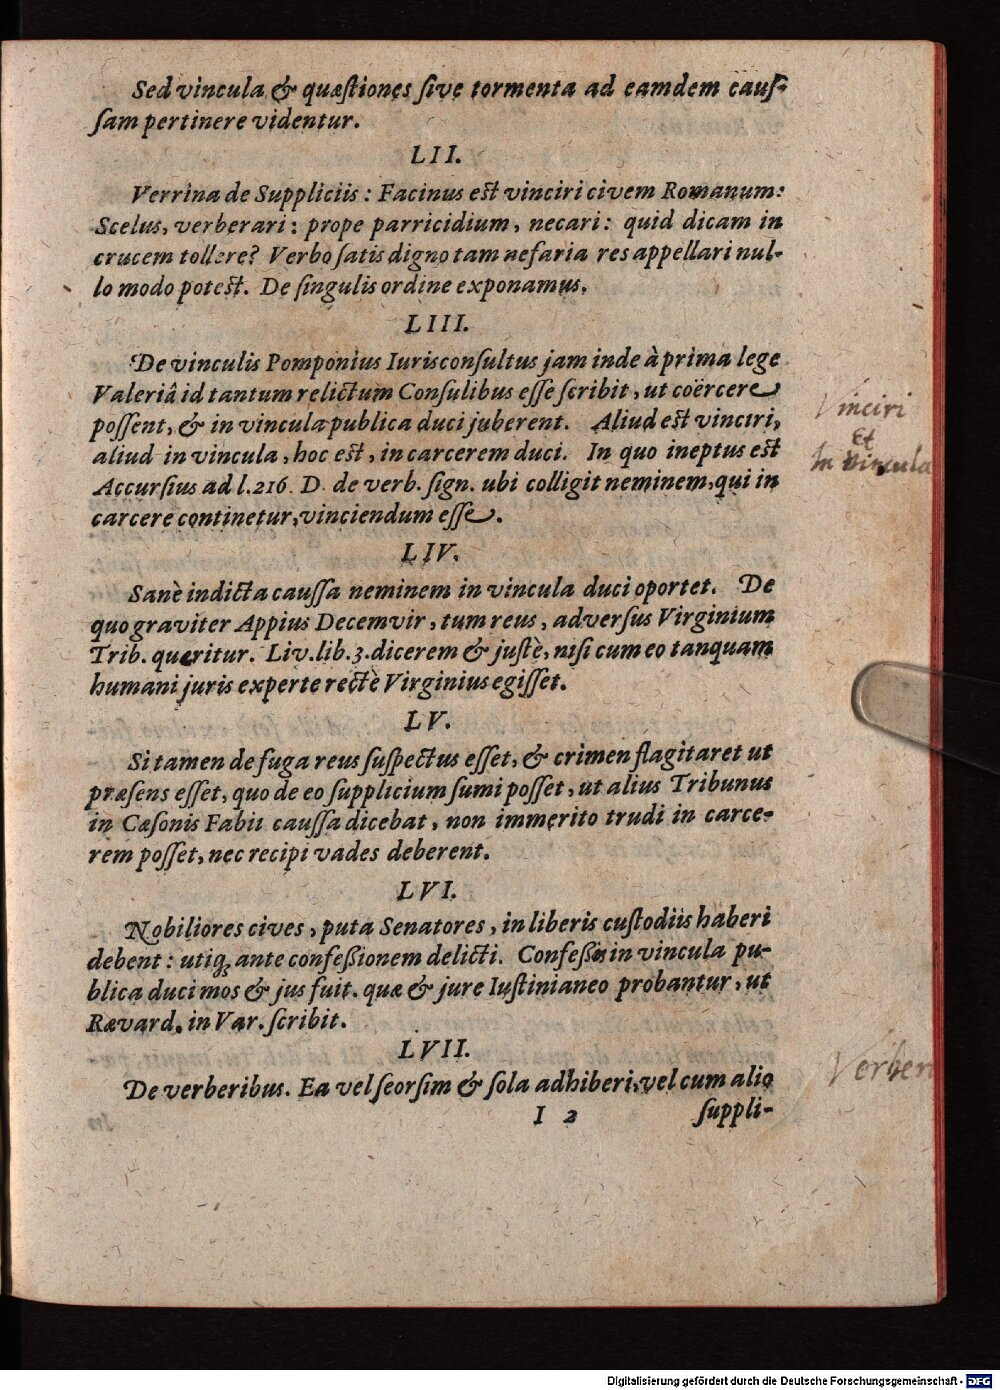 Sed vincula & quæſtiones ſive tormenta ad eamdem cauſ-
ſam pertinere videntur.
LII.
Verrina de Suppliciis: Facinus est vinciri civem Romanum:
Scelus, verberari: prope parricidium, necari: quid dicam in
crucem tollere? Verbo ſatis digno tam nefaria res appellari nul-
lo modo potest. De ſingulis ordine exponamus.
LIII.
De vinculis Pomponius Iurisconſultus jam inde à prima lege
Valeriâ id tantum relictum Conſulibus eſſe ſcribit, ut coërcere
poſſent, & in vincula publica duci juberent. Aliud est vinciri,
aliud in vincula, hoc est, in carcerem duci. In quo ineptus est
Accurſius ad l.216. D. de verb. ſign. ubi colligit neminem, qui in
carcere continetur, vinciendum eſſe.
LIV.
Sanè indicta cauſſa neminem in vincula duci oportet. De
quo graviter Appius Decemvir, tum reus, adverſus Virginium
Trib. queritur. Liv. lib. 3. dicerem & juſtè, niſi cum eo tanquam
humani juris experte rectè Virginius egiſſet.
LV.
Si tamen de fuga reus ſuſpectus eſſet, & crimen flagitaret ut
præſens eſſet, quo de eo ſupplicium ſumi poſſet, ut alius Tribunus
in Cæſonis Fabii cauſſa dicebat, non immerito trudi in carce-
rem poſſet, nec recipi vades deberent.
LVI.
Nobiliores cives, puta Senatores, in liberis cuſtodiis haberi
debent: utiq; ante confeßionem delicti. Confeßos in vincula pu-
blica duci mos & jus fuit. quæ & jure Iuſtinianeo probantur, ut
Rævard. in Var. ſcribit.
LVII.
De verberibus. Ea vel ſeorſim & ſola adhiberi, vel cum alio
I 2 ſuppli-
Vinciri
Et
In vincula
Verber
Digitalisierung gefördert durch die Deutsche Forschungsgemeinschaft - DFG